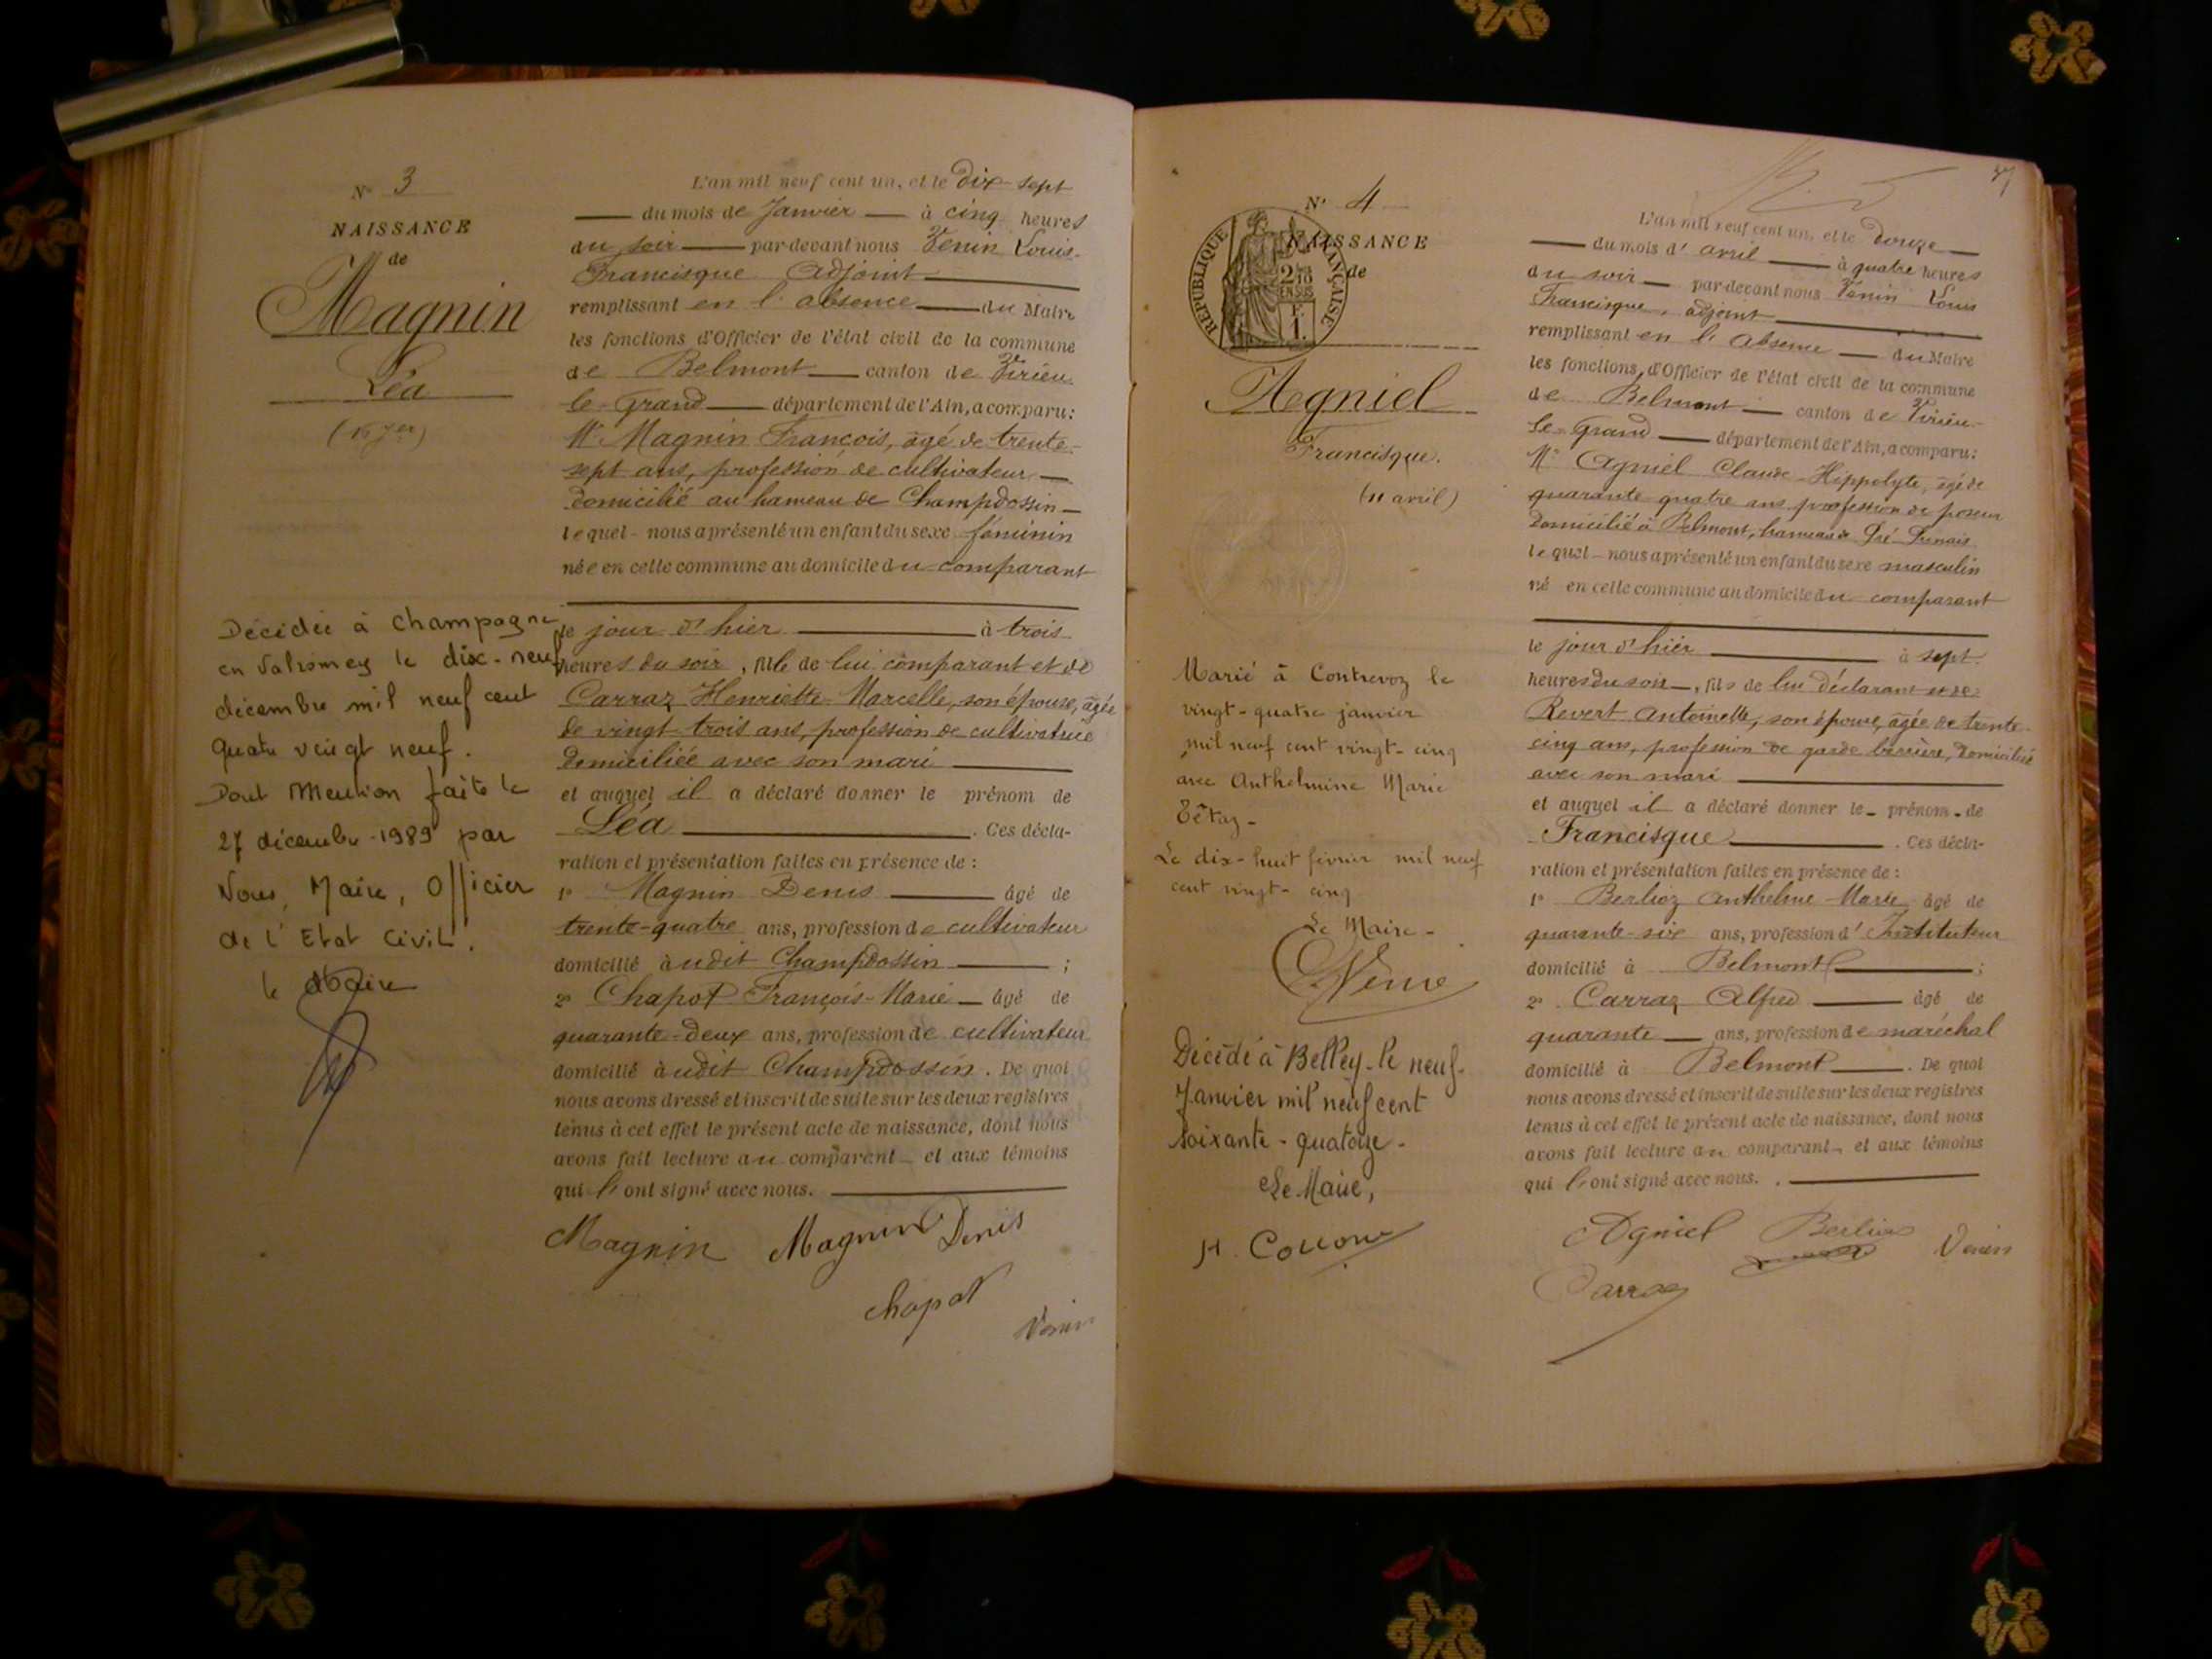 N° 3
NAISSANCE
de
Magnin
Léa
(16 Jer)
Décédée à Champagne
en Valromey le dix-neuf
décembre mil neuf cent
quatre vingt neuf.
Dont Mention faite le
27 décembre 1989 par
Nous, Maire, Officier
de l'Etat Civil.
le Maire
L'an mil neuf cent un, et le dix-sept
du mois de Janvier à cinq heures
du soir par-devant nous Venin Louis-
Francisque Adjoint
remplissant en l'absence du Maire
les fonctions d'Officier de l'état civil de la commune
de Belmont canton de Virieu
le-Grand département de l'Ain, a comparu:
Mr Magnin François, âgé de trente-
sept ans, profession de cultivateur
domicilié au hameau de Champdossin
lequel nous a présenté un enfant du sexe féminin
née en cette commune au domicile du comparant
le jour d'hier à trois
heures du soir, fille de lui comparant et de
Carraz Henriette Marcelle, son épouse, âgée
de vingt-trois ans, profession de cultivatrice
domiciliée avec son mari
et auquel il a déclaré donner le prénom de
Léa. Ces décla-
ration et présentation faites en présence de :
1° Magnin Denis âgé de
trente-quatre ans, profession de cultivateur
domicilié à udit Champdossin ;
2° Chapot François-Marie âgé de
quarante-deux ans, profession de cultivateur
domicilié à udit Champdossin. De quoi
nous avons dressé et inscrit de suite sur les deux registres
tenus à cet effet le présent acte de naissance, dont nous
avons fait lecture au comparant et aux témoins
qui l'ont signé avec nous.
Magnin Magnin Denis
Chapot
Venin
47
N° 4
NAISSANCE
de
RÉPUBLIQUE FRANÇAISE
2/10
EN SUS
F.
1.
Agniel
Francisque.
(11 avril)
Marié à Contrevoz le
vingt-quatre janvier
mil neuf cent vingt-cinq
avec Anthelmine Marie
Tétaz-
Le dix-huit février mil neuf
cent vingt-cinq
Le Maire-
Décédé à Belley-le neuf-
Janvier mil neuf cent
soixante-quatorze-
Le Maire,
L'an mil neuf cent un, et le douze
du mois d'avril à quatre heures
du soir par-devant nous Venin Louis
Francisque, adjoint
remplissant en l'absence du Maire
les fonctions d'Officier de l'état civil de la commune
de Belmont canton de Virieu-
le-Grand département de l'Ain, a comparu:
Mr Agniel Claude-Hippolyte, âgé de
quarante-quatre ans profession de poseur
domicilié à Belmont, hameau de
lequel nous a présenté un enfant du sexe masculin
né en cette commune au domicile du comparant
le jour d'hier à sept
heures du soir, fils de lui déclarant et de
Revert Antoinette, son épouse, âgée de trente-
cinq ans, profession de garde barrière, domiciliée
avec son mari
et auquel il a déclaré donner le prénom de
Francisque. Ces décla-
ration et présentation faites en présence de :
1° Berlioz Anthelme-Marie âgé de
quarante-six ans, profession d'Instituteur
domicilié à Belmont ;
2° Carraz Alfred âgé de
quarante ans, profession de maréchal
domicilié à Belmont. De quoi
nous avons dressé et inscrit de suite sur les deux registres
tenus à cet effet le présent acte de naissance, dont nous
avons fait lecture au comparant et aux témoins
qui l'ont signé avec nous.
Agniel Berlioz Venin
Carraz